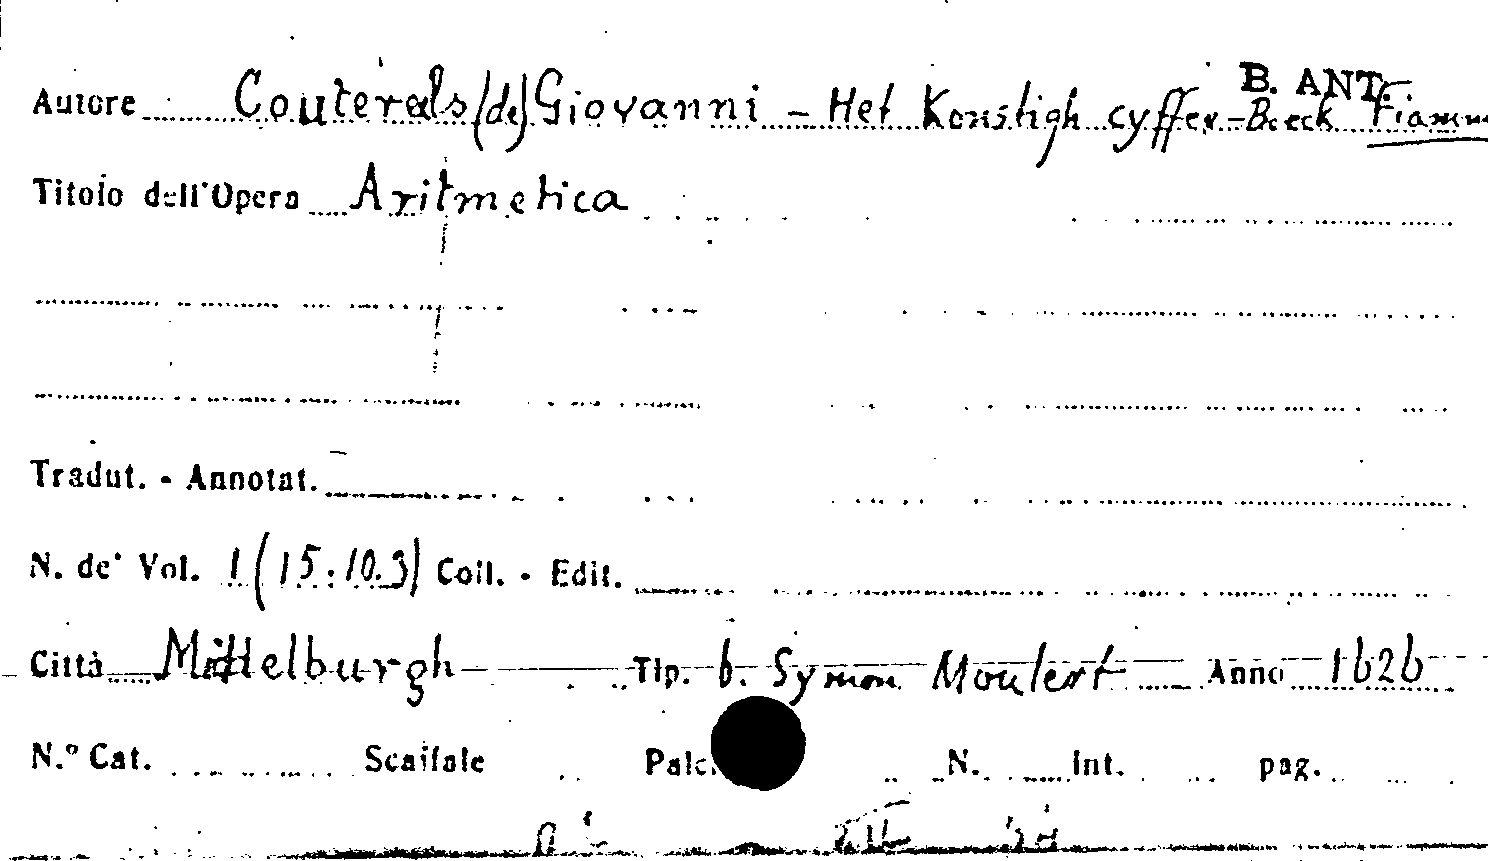 B. ANT.
Autore Couterels (de) Giovanni - Het Konstigh cyffer-Boeck
Titolo dell'Opera Aritmetica
Tradut. - Annotat.
N. de' Vol. 1 (15.10.3) Coll. - Edit.
Città Middelburgh Tip. b. Symon Moulert Anno 1626
N.º Cat. Scaffale N. Int. pag.